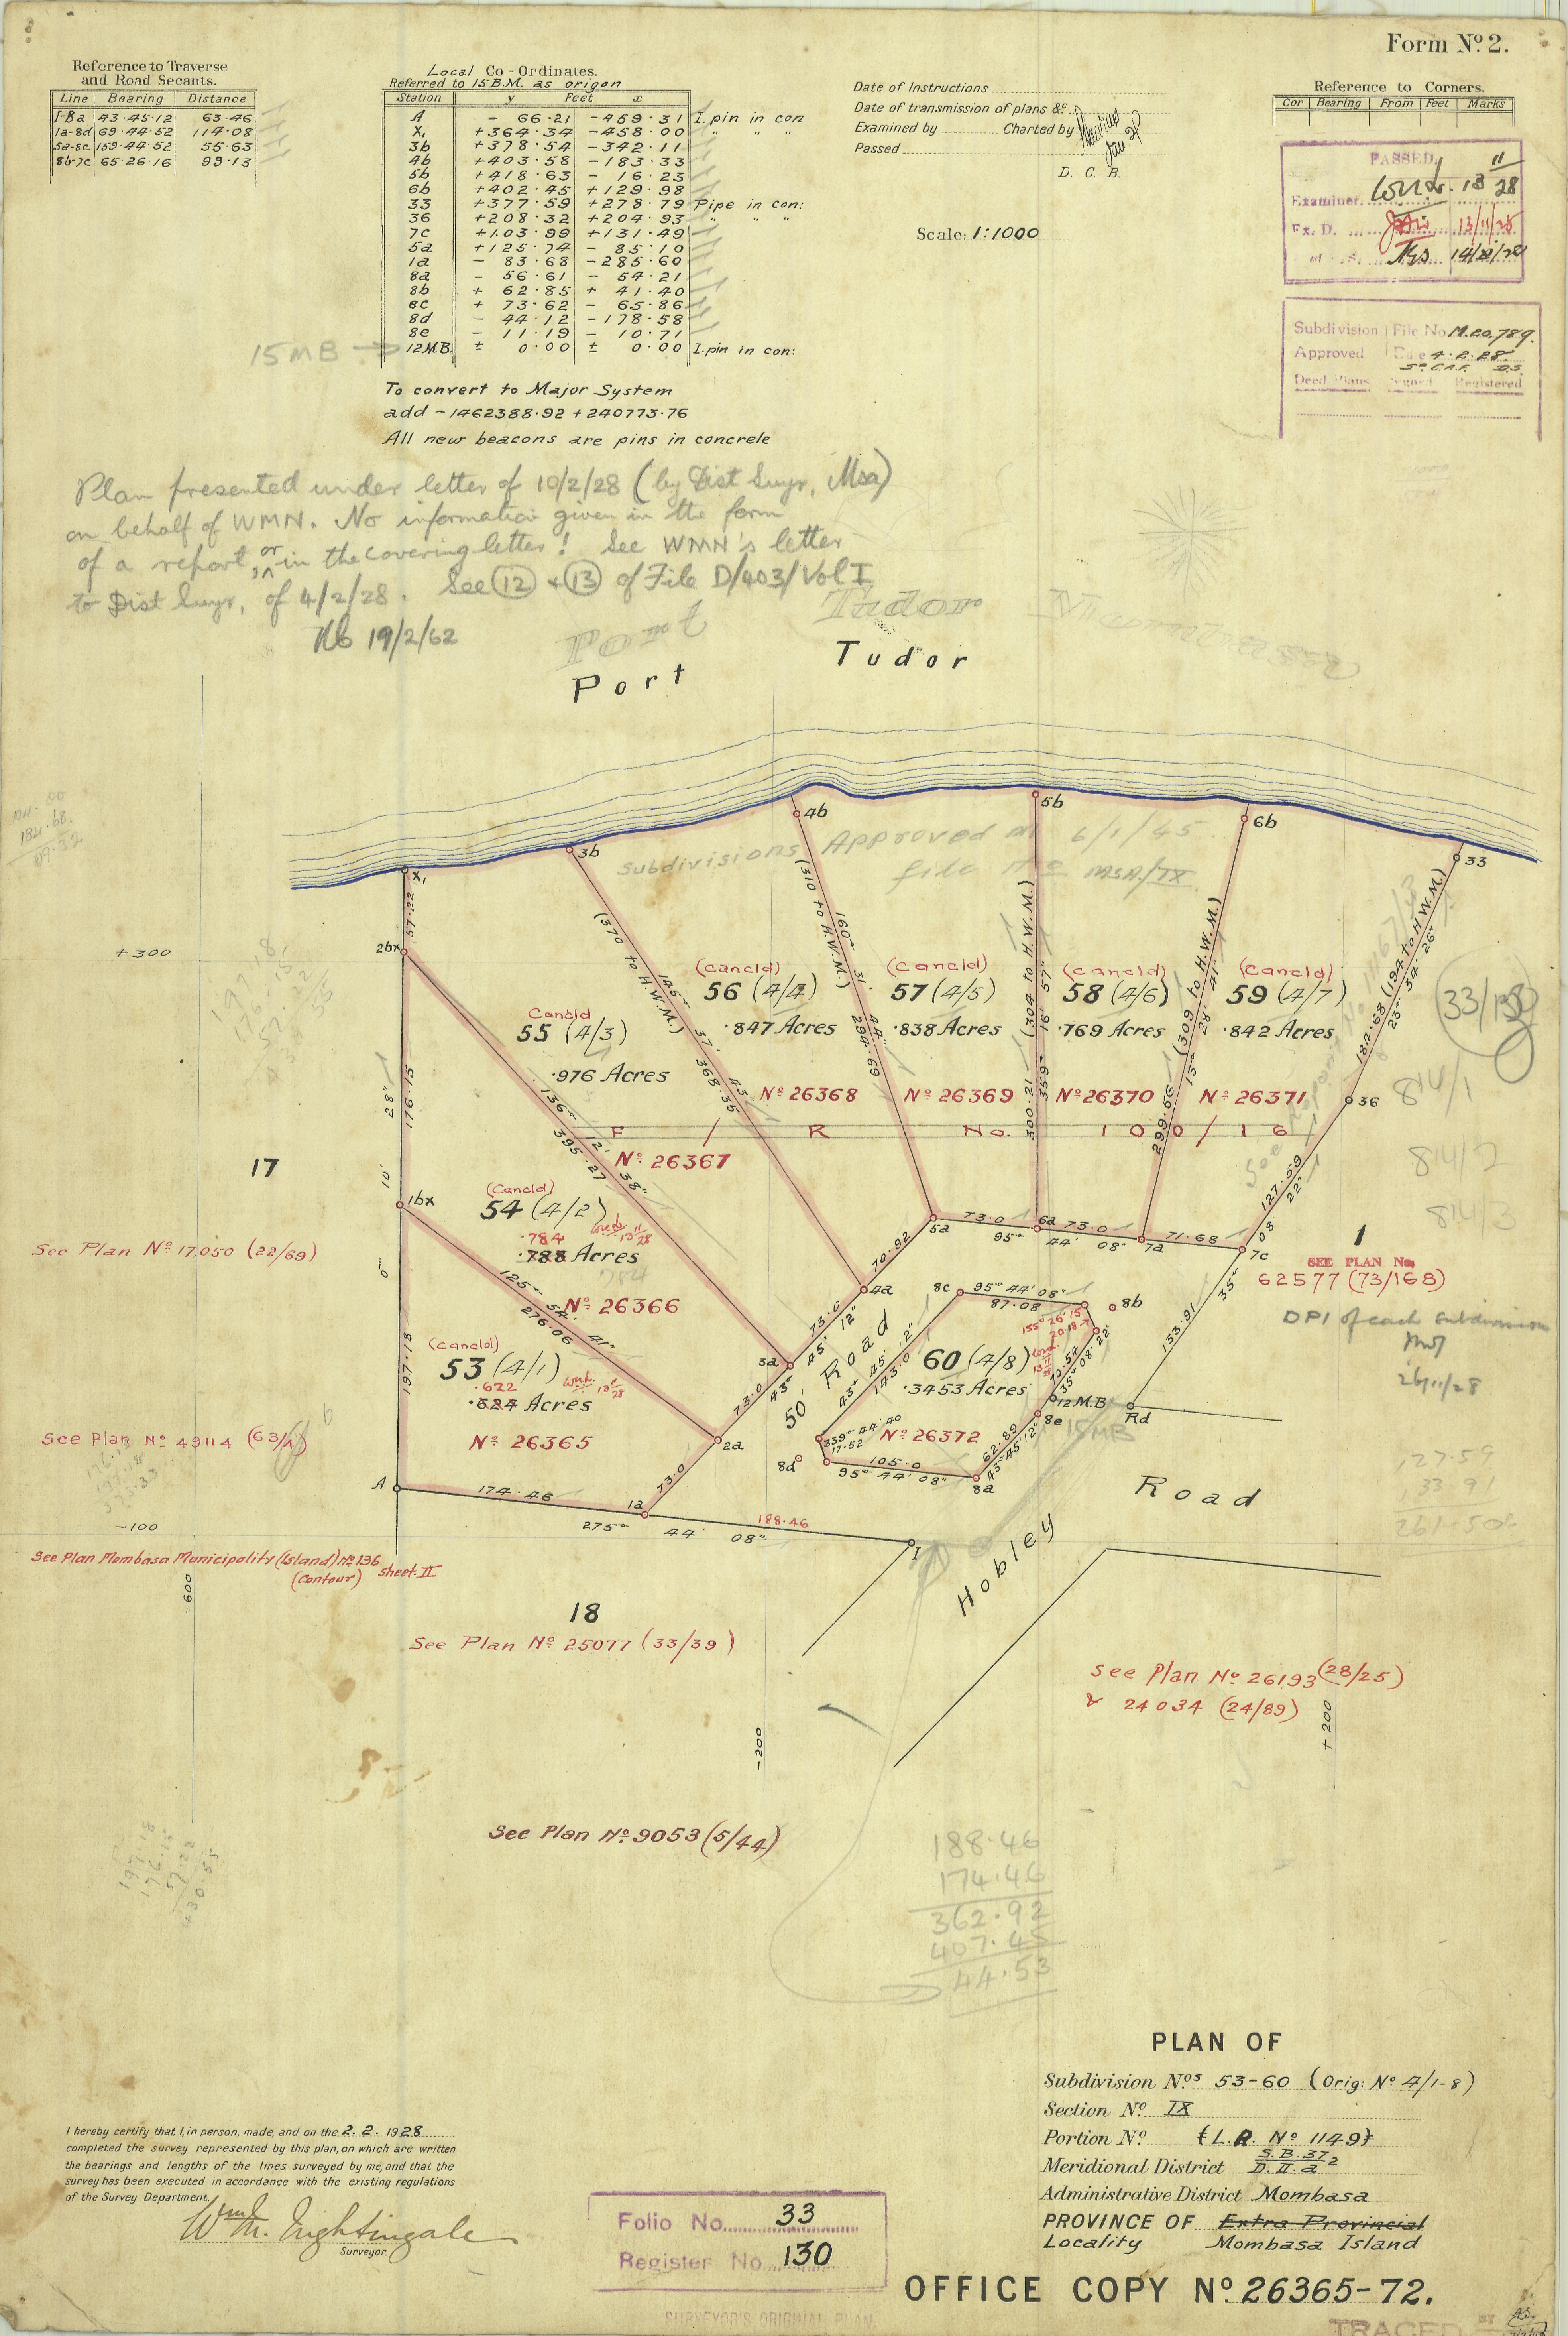 Form Nº 2.
Reference to Traverse
and Road Secants.
Line Bearing Distance
1-8a 43·45·12 63·46
1a-8d 69·44·52 114·08
5a-8c 159·44·52 55·63
8b-7c 65·26·16 99·13
Local Co-Ordinates.
Referred to 15 B.M. as origen
Station y Feet x
A - 66·21 -459·31 I. pin in con
X, +364·34 -458·00 " " "
3b +378·54 -342·11
4b +403·58 -183·33
5b +418·63 - 16·23
6b +402·45 +129·98
33 +377·59 +278·79 Pipe in con:
36 +208·32 +204·93 " " "
7c +103·99 +131·49
5a +125·74 - 85·10
1a - 83·68 -285·60
8a - 56·61 - 54·21
8b + 62·85 + 41·40
8c + 73·62 - 65·86
8d - 44·12 -178·58
8e - 11·19 - 10·71
15 MB → 12 M.B. ± 0·00 ± 0·00 I. pin in con:
To convert to Major System
add -1462388·92 +240773·76
All new beacons are pins in concrete
Date of Instructions
Date of transmission of plans &c.
Examined by Charted by
Passed
D. C. B.
Scale: 1:1000
Reference to Corners.
Cor Bearing From Feet Marks
PASSED
Examiner 13 11/28
Ex. D. 13/11/28
Subdivision File No M.20,789.
Approved Date 4.2.28.
Deed Plans Signed Registered
Plan presented under letter of 10/2/28 (by Dist Suyr, Msa)
on behalf of WMN. No information given in the form
of a report, or in the covering letter! See WMN's letter
to Dist Suyr, of 4/2/28. See (12) & (13) of File D/403/Vol I
19/2/62
Port Tudor
Port Tudor
Subdivisions Approved 6/1/45
file Nº MSA/IX
X, 3b 4b 5b 6b 33
57·22
2bx
+300
(370 to H.W.M.)
145° 37' 43"
368·35
(310 to H.W.M.)
160° 31' 44"
294·69
(304 to H.W.M.)
359° 16' 57"
300·21
(309 to H.W.M.)
13° 28' 41"
299·56
184·68 (194 to H.W.M.)
23° 34' 26"
(Cancld)
56 (4/4)
·847 Acres
(Cancld)
57 (4/5)
·838 Acres
(Cancld)
58 (4/6)
·769 Acres
(Cancld)
59 (4/7)
·842 Acres
33/130
Cancld
55 (4/3)
·976 Acres
Nº 26368 Nº 26369 Nº 26370 Nº 26371
36
814/1
F / R No. 100/16
Nº 26367
136° 12' 38"
395·27
0° 10' 28"
176·15
17
1bx
814/2
814/3
(Cancld)
54 (4/2)
·784
·788 Acres
784
See Plan Nº 17050 (22/69)
125° 54' 41"
276·06
Nº 26366
5a 73·0 6a 73·0 7a 71·68 7c
95° 44' 08"
127·59
35° 08' 22"
133·91
1
SEE PLAN No.
62577 (73/168)
DPI of each subdivision
26/11/28
70·92
4a
73·0
43° 45' 12"
3a
73·0
2a
73·0
50' Road
8c 95° 44' 08" 8b
87·08
155° 26' 15"
20·18
43° 45' 12"
143·0
60 (4/8)
·3453 Acres
70·54
35° 08' 22"
12 M.B
15 MB
8e
Rd
Nº 26372
339° 44' 40
17·52
8d
105·0
95° 44' 08"
62·89
43° 45' 12"
8a
(Cancld)
53 (4/1)
·622
·624 Acres
Nº 26365
197·18
See Plan Nº 49114 (63/4)
A 174·46 1a 188·46 I
275° 44' 08"
-100
Hobley Road
See Plan Mombasa Municipality (Island) Nº 136
(Contour) sheet II
-600
18
See Plan Nº 25077 (33/39)
See Plan Nº 26193 (28/25)
& 24034 (24/89)
-200
+200
127·59
133 91
261·50
See Plan Nº 9053 (5/44)
197·18
176·15
57·22
430·55
188·46
174·46
362·92
407·45
44·53
PLAN OF
Subdivision Nos 53-60 (Orig: Nº 4/1-8)
Section Nº IX
Portion Nº (L.R. Nº 1149)
Meridional District S.B.37/D.II.a 2
Administrative District Mombasa
PROVINCE OF Extra Provincial
Locality Mombasa Island
I hereby certify that I, in person, made, and on the 2. 2. 1928
completed the survey represented by this plan, on which are written
the bearings and lengths of the lines surveyed by me, and that the
survey has been executed in accordance with the existing regulations
of the Survey Department.
Wm M. Nightingale
Surveyor.
Folio No. 33
Register No. 130
SURVEYOR'S ORIGINAL PLAN
OFFICE COPY Nº 26365-72.
TRACED BY